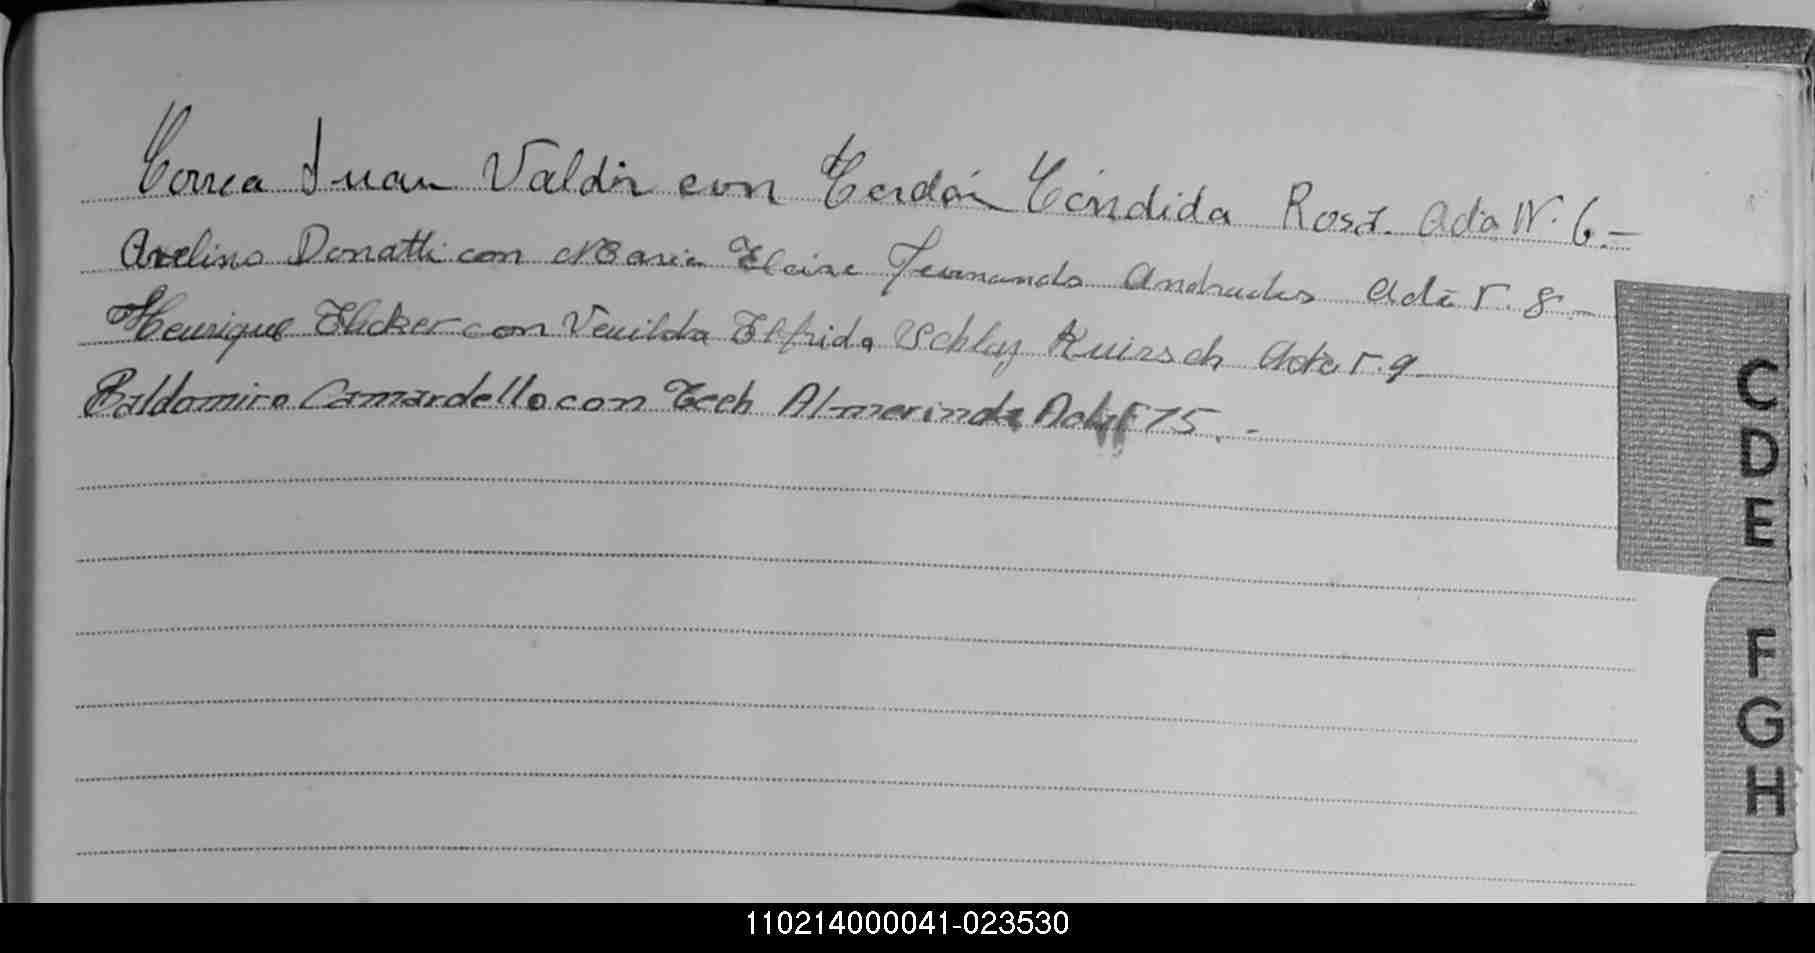 Correa Juan Valdir con Cerdán Cándida Rosa. Acta Nº 6.—
Avelino Donatti con Maria Elaine Fernanda Andrades Acta F. 8.—
Henrique Elicker con Venilda Elfrida Schlay Acta F. 9
Baldomiro Camardello con Tech Almerinda Acta F 15. -
C
D
E
F
G
H
110214000041-023530